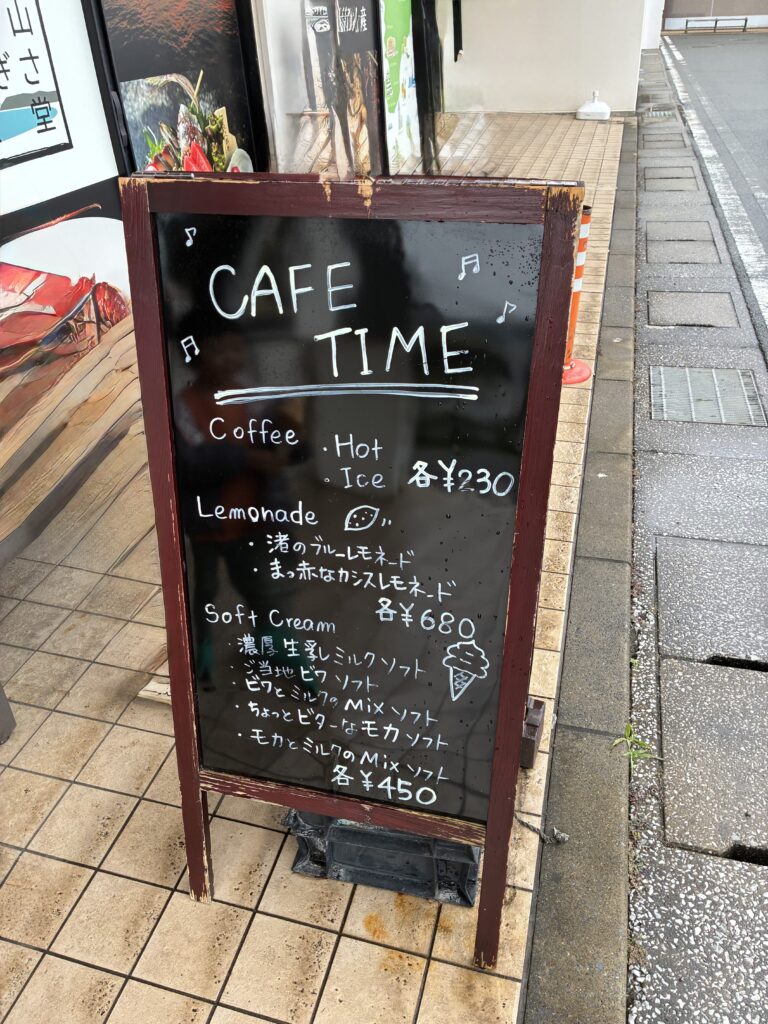 山さ
ぎ堂
CAFE
TIME
Coffee ・Hot
・Ice 各¥230
Lemonade
・渚のブルーレモネード
・まっ赤なカシスレモネード
各¥680
Soft Cream
・濃厚生乳ミルクソフト
・ご当地ビワソフト
・ビワとミルクのMixソフト
・ちょっとビターなモカソフト
・モカとミルクのMixソフト
各¥450